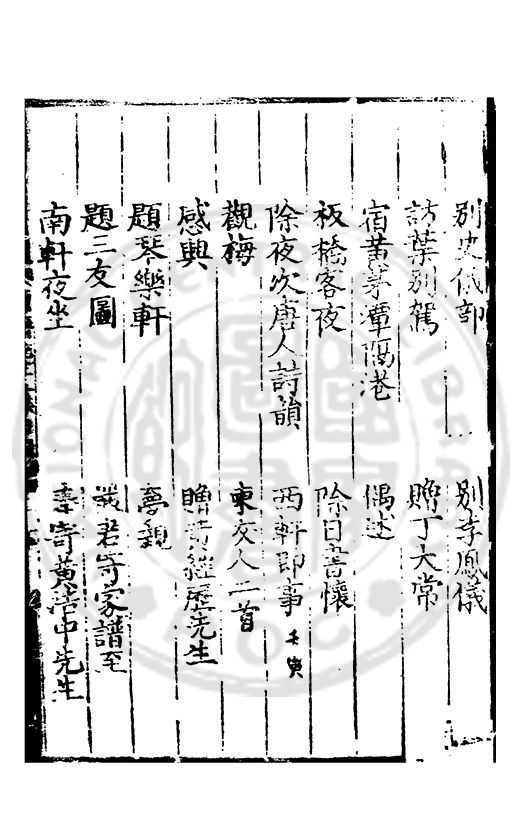 別史儀部
別李鳳儀
訪葉別駕
贈丁大常
宿黃茅潭隔港
偶述
板橋客夜
除日書懷
除夜次唐人詩韻
西軒即事 壬寅
觀梅
柬友人二首
感興
贈黃經歷先生
題琴樂軒
夢親
題三友圖
嵗君寄家譜至
南軒夜坐
奉寄黃浩中先生